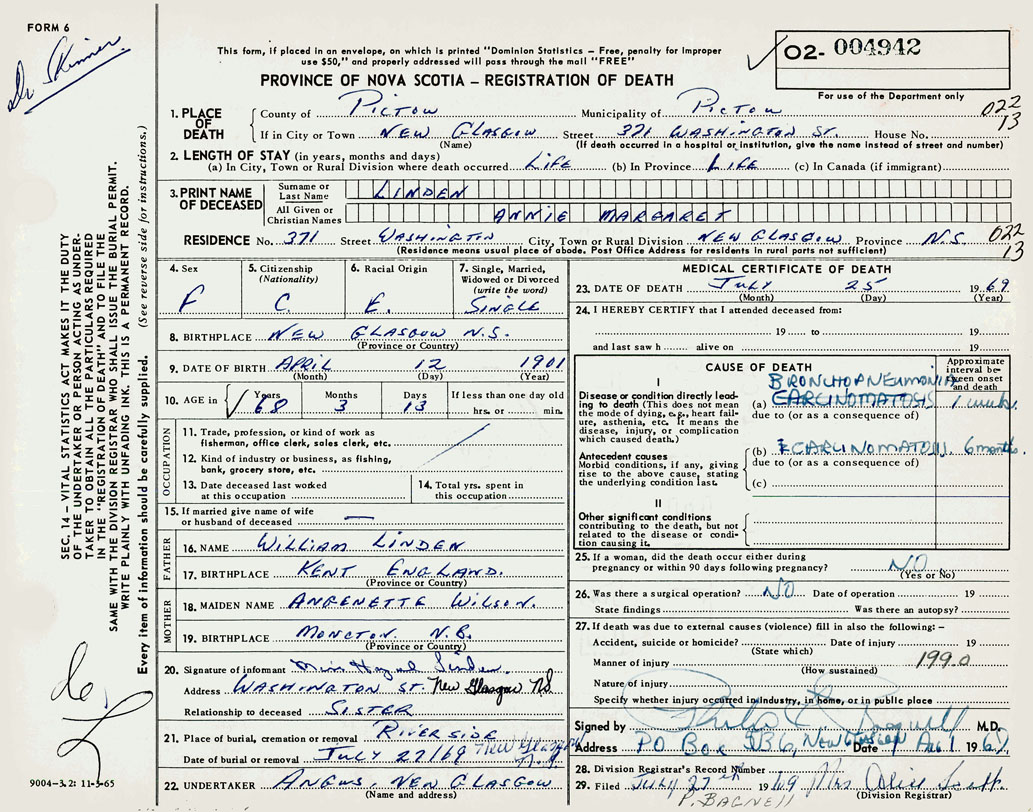 FORM 6
Dr Skinner
This form, if placed in an envelope, on which is printed "Dominion Statistics – Free, penalty for improper
use $50," and properly addressed will pass through the mail "FREE"
PROVINCE OF NOVA SCOTIA – REGISTRATION OF DEATH
O2- 004942
For use of the Department only
022
13
1. PLACE OF DEATH County of PICTOU Municipality of PICTOU
If in City or Town NEW GLASGOW Street 371 WASHINGTON ST. House No.
(Name) (If death occurred in a hospital or institution, give the name instead of street and number)
2. LENGTH OF STAY (in years, months and days)
(a) In City, Town or Rural Division where death occurred LIFE (b) In Province LIFE (c) In Canada (if immigrant)
3. PRINT NAME OF DECEASED Surname or Last Name LINDEN
All Given or Christian Names ANNIE MARGARET
RESIDENCE No. 371 Street WASHINGTON City, Town or Rural Division NEW GLASGOW Province N.S. 022
13
(Residence means usual place of abode. Post Office Address for residents in rural parts not sufficient)
4. Sex F
5. Citizenship (Nationality) C.
6. Racial Origin E.
7. Single, Married, Widowed or Divorced (write the word) SINGLE
8. BIRTHPLACE NEW GLASGOW N.S.
(Province or Country)
9. DATE OF BIRTH APRIL 12 1901
(Month) (Day) (Year)
10. AGE in Years 68 Months 3 Days 13 If less than one day old hrs. or min.
OCCUPATION
11. Trade, profession, or kind of work as
fisherman, office clerk, sales clerk, etc.
12. Kind of industry or business, as fishing,
bank, grocery store, etc.
13. Date deceased last worked
at this occupation
14. Total yrs. spent in
this occupation
15. If married give name of wife
or husband of deceased —
FATHER
16. NAME WILLIAM LINDEN
17. BIRTHPLACE KENT ENGLAND.
(Province or Country)
MOTHER
18. MAIDEN NAME ANGENETTE WILSON.
19. BIRTHPLACE MONCTON N.B.
(Province or Country)
20. Signature of informant Miss Linden
Address WASHINGTON ST. New Glasgow NS.
Relationship to deceased SISTER
21. Place of burial, cremation or removal RIVERSIDE
New Glasgow N.S.
Date of burial or removal JULY 27/69
22. UNDERTAKER ANGUS, NEW GLASGOW
(Name and address)
MEDICAL CERTIFICATE OF DEATH
23. DATE OF DEATH JULY 25 1969
(Month) (Day) (Year)
24. I HEREBY CERTIFY that I attended deceased from:
19 to 19
and last saw h alive on 19
CAUSE OF DEATH
Approximate interval between onset and death
I
BRONCHOPNEUMONIA
Disease or condition directly leading to death (This does not mean the mode of dying, e.g., heart failure, asthenia, etc. It means the disease, injury, or complication which caused death.)
(a) CARCINOMATOSIS 1 week.
due to (or as a consequence of)
Antecedent causes
Morbid conditions, if any, giving rise to the above cause, stating the underlying condition last.
(b) CARCINOMATOSIS 6 months.
due to (or as a consequence of)
(c)
II
Other significant conditions
contributing to the death, but not
related to the disease or condition causing it.
25. If a woman, did the death occur either during
pregnancy or within 90 days following pregnancy? NO
(Yes or No)
26. Was there a surgical operation? NO Date of operation 19
State findings Was there an autopsy?
27. If death was due to external causes (violence) fill in also the following: –
Accident, suicide or homicide? Date of injury 19
(State which)
Manner of injury 199.0
(How sustained)
Nature of injury
Specify whether injury occurred in industry, in home, or in public place
Signed by M.D.
Address PO Box 536, NEW GLASGOW Date Aug 1 1969
28. Division Registrar's Record Number
29. Filed July 27th 1969 Mrs Alice Scott
(Division Registrar)
P. BAGNELL
SEC. 14 – VITAL STATISTICS ACT MAKES IT THE DUTY
OF THE UNDERTAKER OR PERSON ACTING AS UNDER-
TAKER TO OBTAIN ALL THE PARTICULARS REQUIRED
IN THE "REGISTRATION OF DEATH" AND TO FILE THE
SAME WITH THE DIVISION REGISTRAR WHO SHALL ISSUE THE BURIAL PERMIT.
WRITE PLAINLY WITH UNFADING INK. THIS IS A PERMANENT RECORD.
Every item of information should be carefully supplied. (See reverse side for instructions.)
9004-3.2: 11-5-65